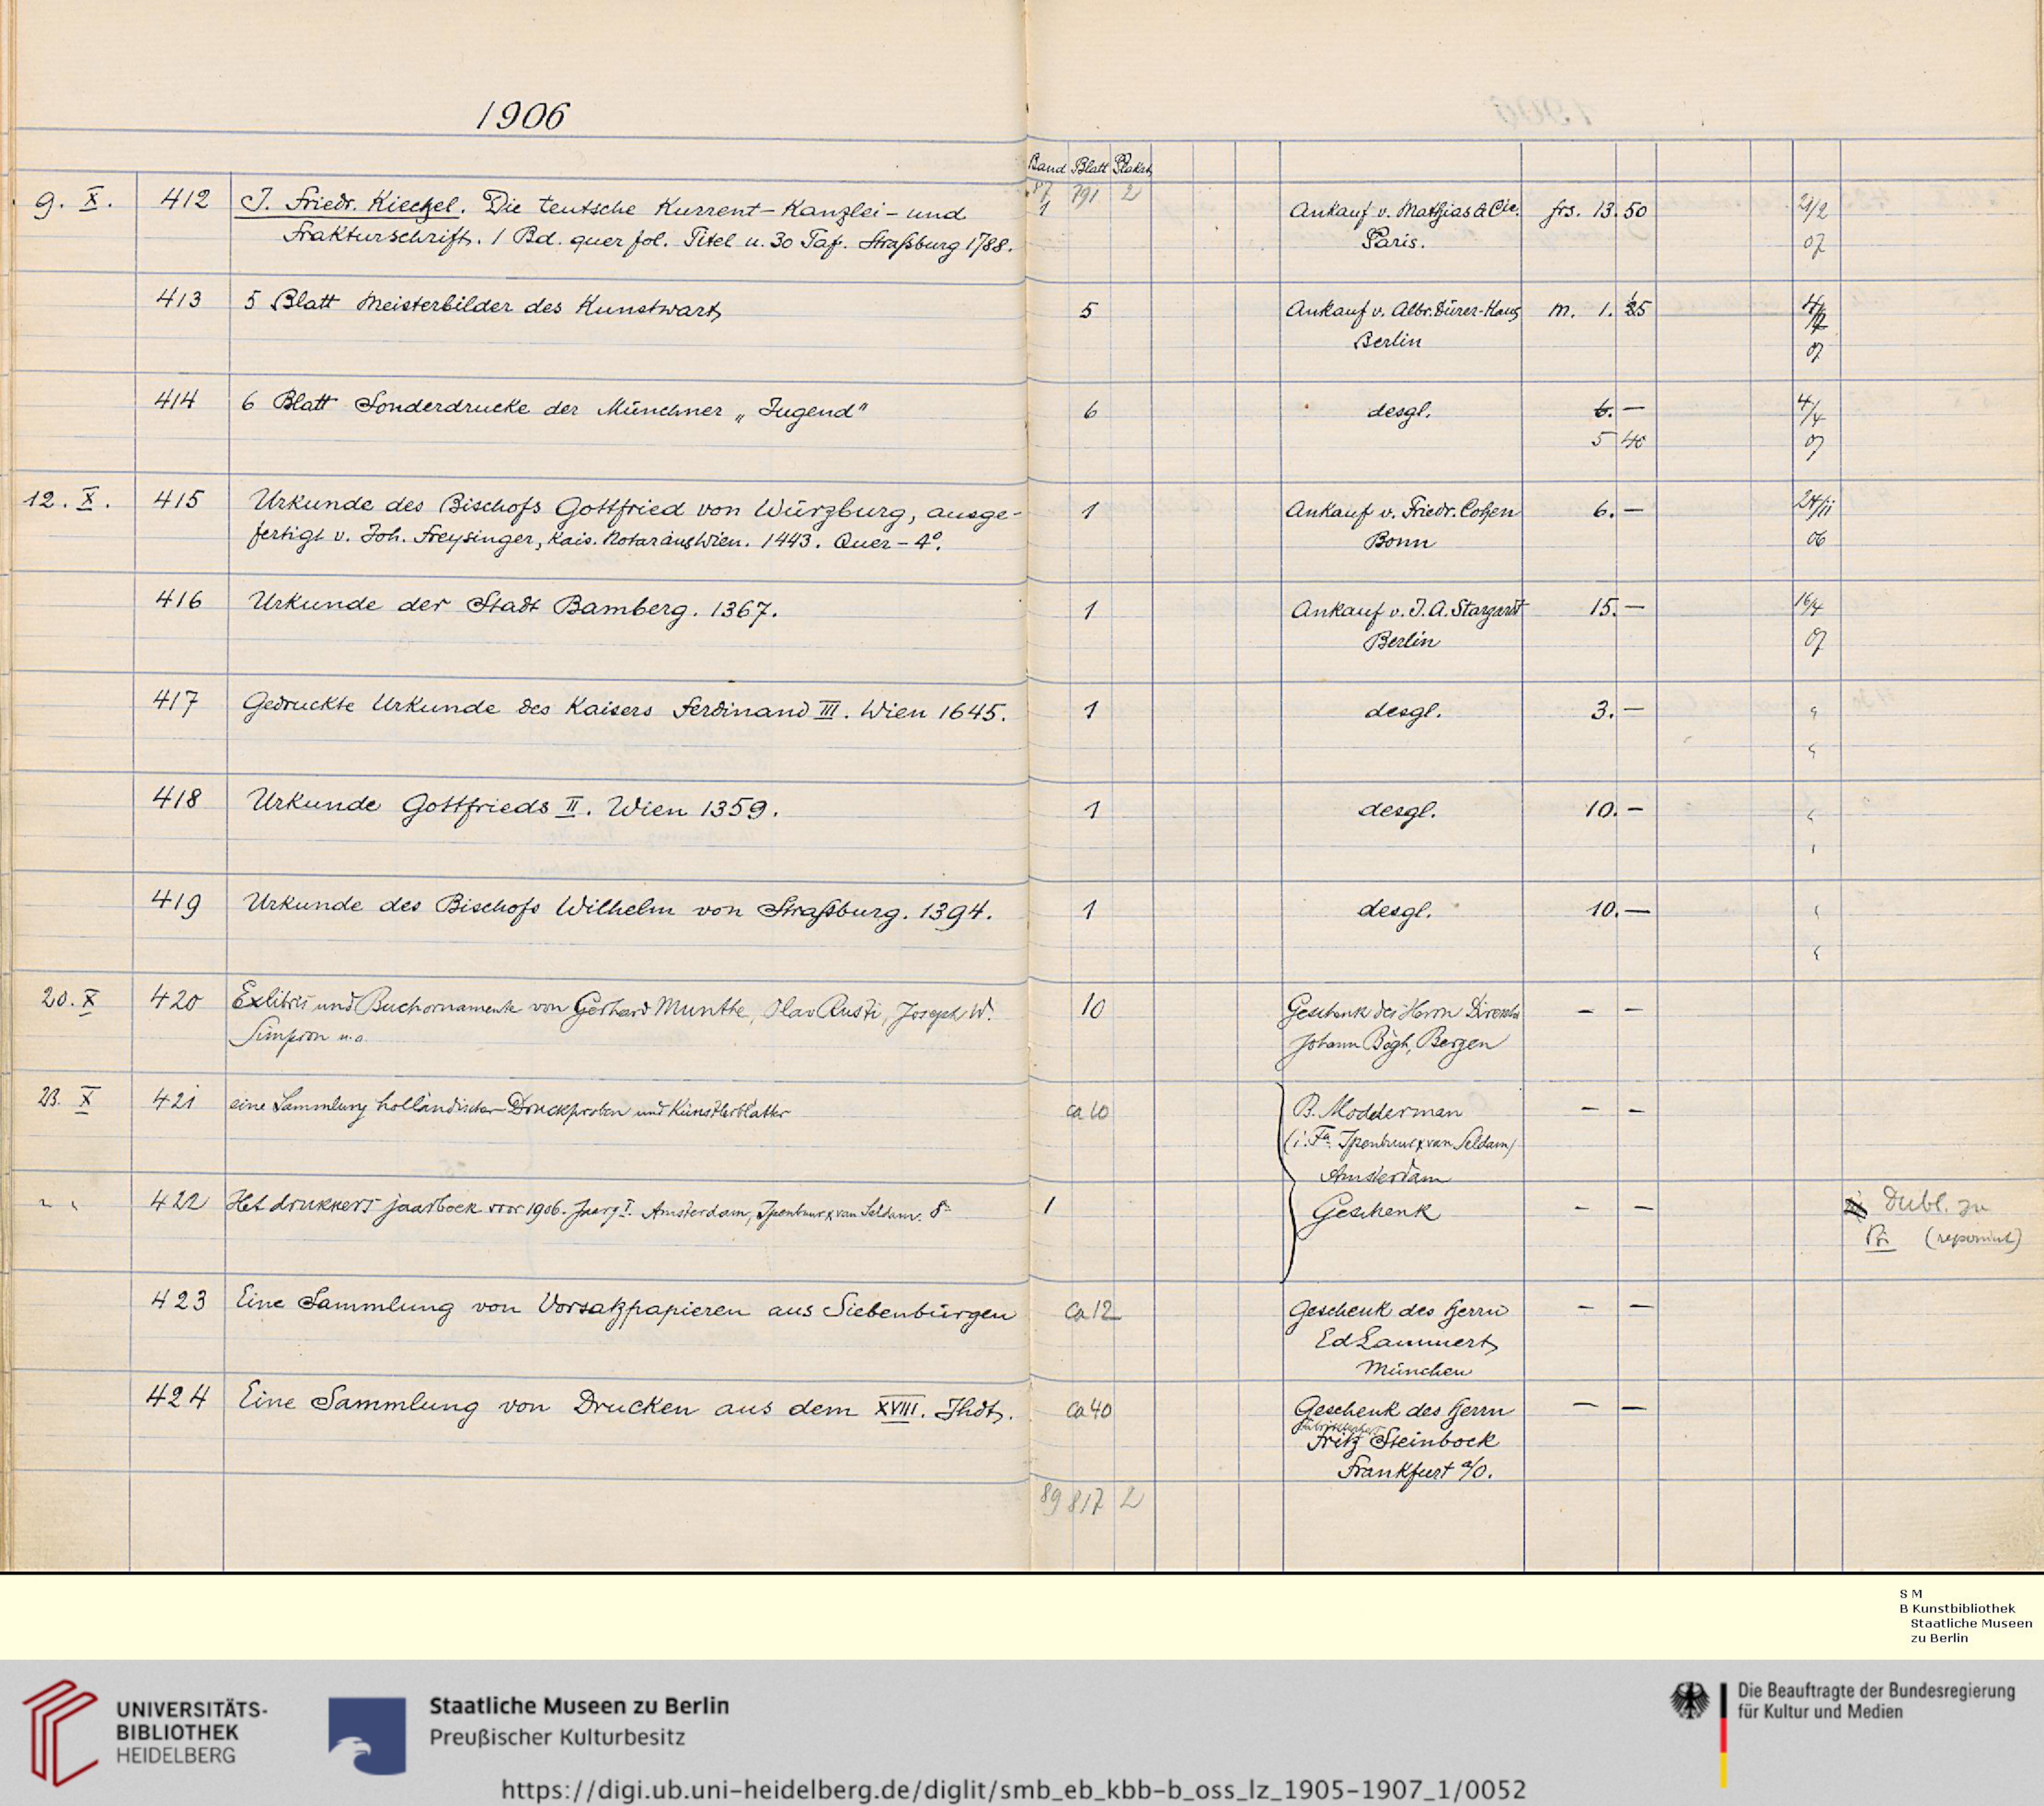 1906
Band Blatt Plakat
87 791 2
9. X. 412 J. Friedr. Kieckel. Die teutsche Kurrent-Kanzlei- und 1 Ankauf v. Mathias & Cie. frs. 13.50 21/2
Frakturschrift. 1 Bd. quer fol. Titel u. 30 Taf. Straßburg 1788. Paris. 07
413 5 Blatt Meisterbilder des Kunstwart 5 Ankauf v. Albr. Dürer-Haus M. 1. 4/
Berlin 07
414 6 Blatt Sonderdrucke der Münchner „Jugend" 6 desgl. 6. — 4/4
5 40 07
12. X. 415 Urkunde des Bischofs Gottfried von Würzburg, ausge- 1 Ankauf v. Friedr. Cohen 6. — 24/11
fertigt v. Joh. Freysinger, Kais. Notar aus Wien. 1443. Quer-4°. Bonn 06
416 Urkunde der Stadt Bamberg. 1367. 1 Ankauf v. J. A. Stargardt 15. — 16/4
Berlin 07
417 Gedruckte Urkunde des Kaisers Ferdinand III. Wien 1645. 1 desgl. 3. — "
"
418 Urkunde Gottfrieds II. Wien 1359. 1 desgl. 10. — "
"
419 Urkunde des Bischofs Wilhelm von Straßburg. 1394. 1 desgl. 10. — "
"
20. X 420 Exlibris und Buchornamente von Gerhard Munthe, Olav Rusti, Joseph W. 10 Geschenk des Herrn Direktor — —
Simpson u.a. Johann Bögh, Bergen
23. X 421 eine Sammlung holländischer Druckproben und Künstlerblätter ca 10 B. Modderman — —
(i. Fa. Ipenbuur & van Seldam)
Amsterdam
" " 422 Het drukkers jaarboek voor 1906. Jaarg I. Amsterdam, Ipenbuur & van Seldam. 8° 1 Geschenk — — Dubl. zu
(reponiert)
423 Eine Sammlung von Vorsatzpapieren aus Siebenbürgen ca 12 Geschenk des Herrn — —
Ed Lammert
München
424 Eine Sammlung von Drucken aus dem XVIII. Jhdt. ca 40 Geschenk des Herrn — —
Fritz Steinbock
Frankfurt a/O.
89 817 2
S M
B Kunstbibliothek
Staatliche Museen
zu Berlin
UNIVERSITÄTS-
BIBLIOTHEK
HEIDELBERG
Staatliche Museen zu Berlin
Preußischer Kulturbesitz
Die Beauftragte der Bundesregierung
für Kultur und Medien
https://digi.ub.uni-heidelberg.de/diglit/smb_eb_kbb-b_oss_lz_1905-1907_1/0052